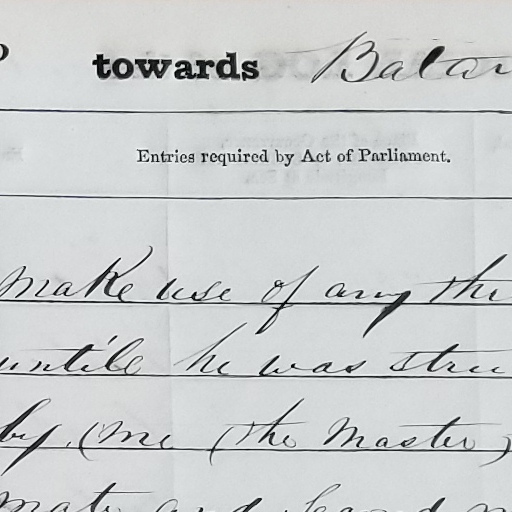 towards Batav
Entries required by Act of Parliament.
make use of any the
untile he was stru
by (me (the Master)
mate and